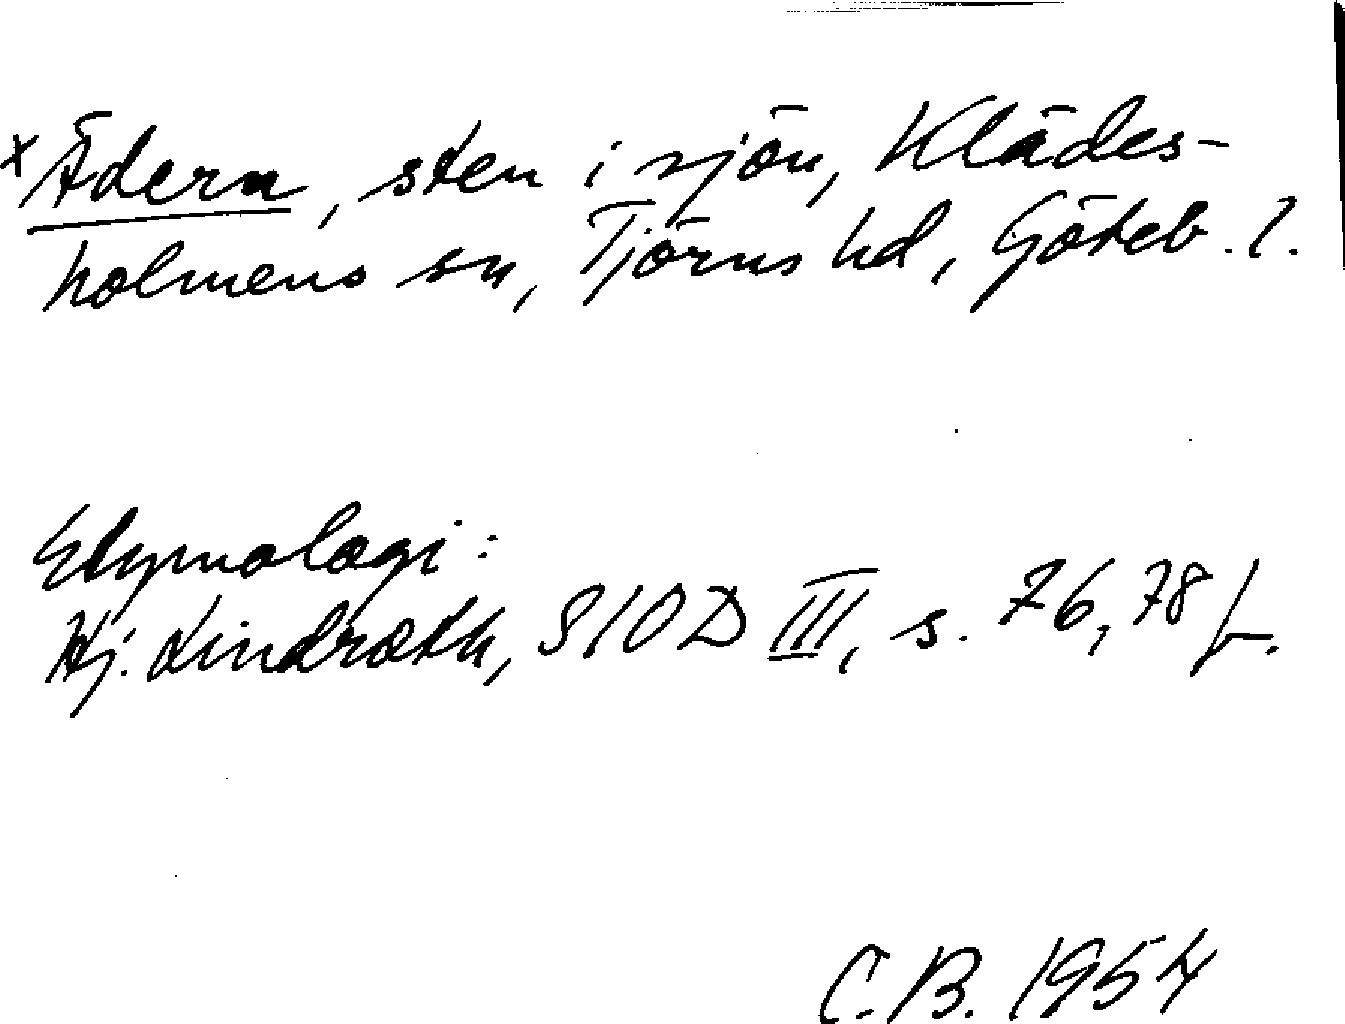 × Ädern, sten i sjön, Klädes-
holmens sn, Tjörns hd, Göteb. l.
Etymologi:
Hj. Lindroth, SIOD III, s. 76, 78 f.
C.B. 1954